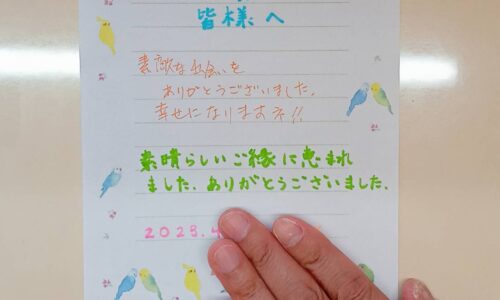 皆様へ
素敵な出会いを
ありがとうございました。
幸せになりますネ!!
素晴らしいご縁に恵まれ
ました。ありがとうございました。
2023.4